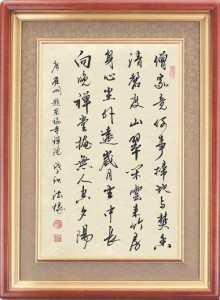 僧家竟何事掃地与焚香
清磬度山翠閑雲来竹房
身心塵外遠歲月坐中長
向晚禅堂掩無人空夕陽
唐崔峒題崇福寺禅院